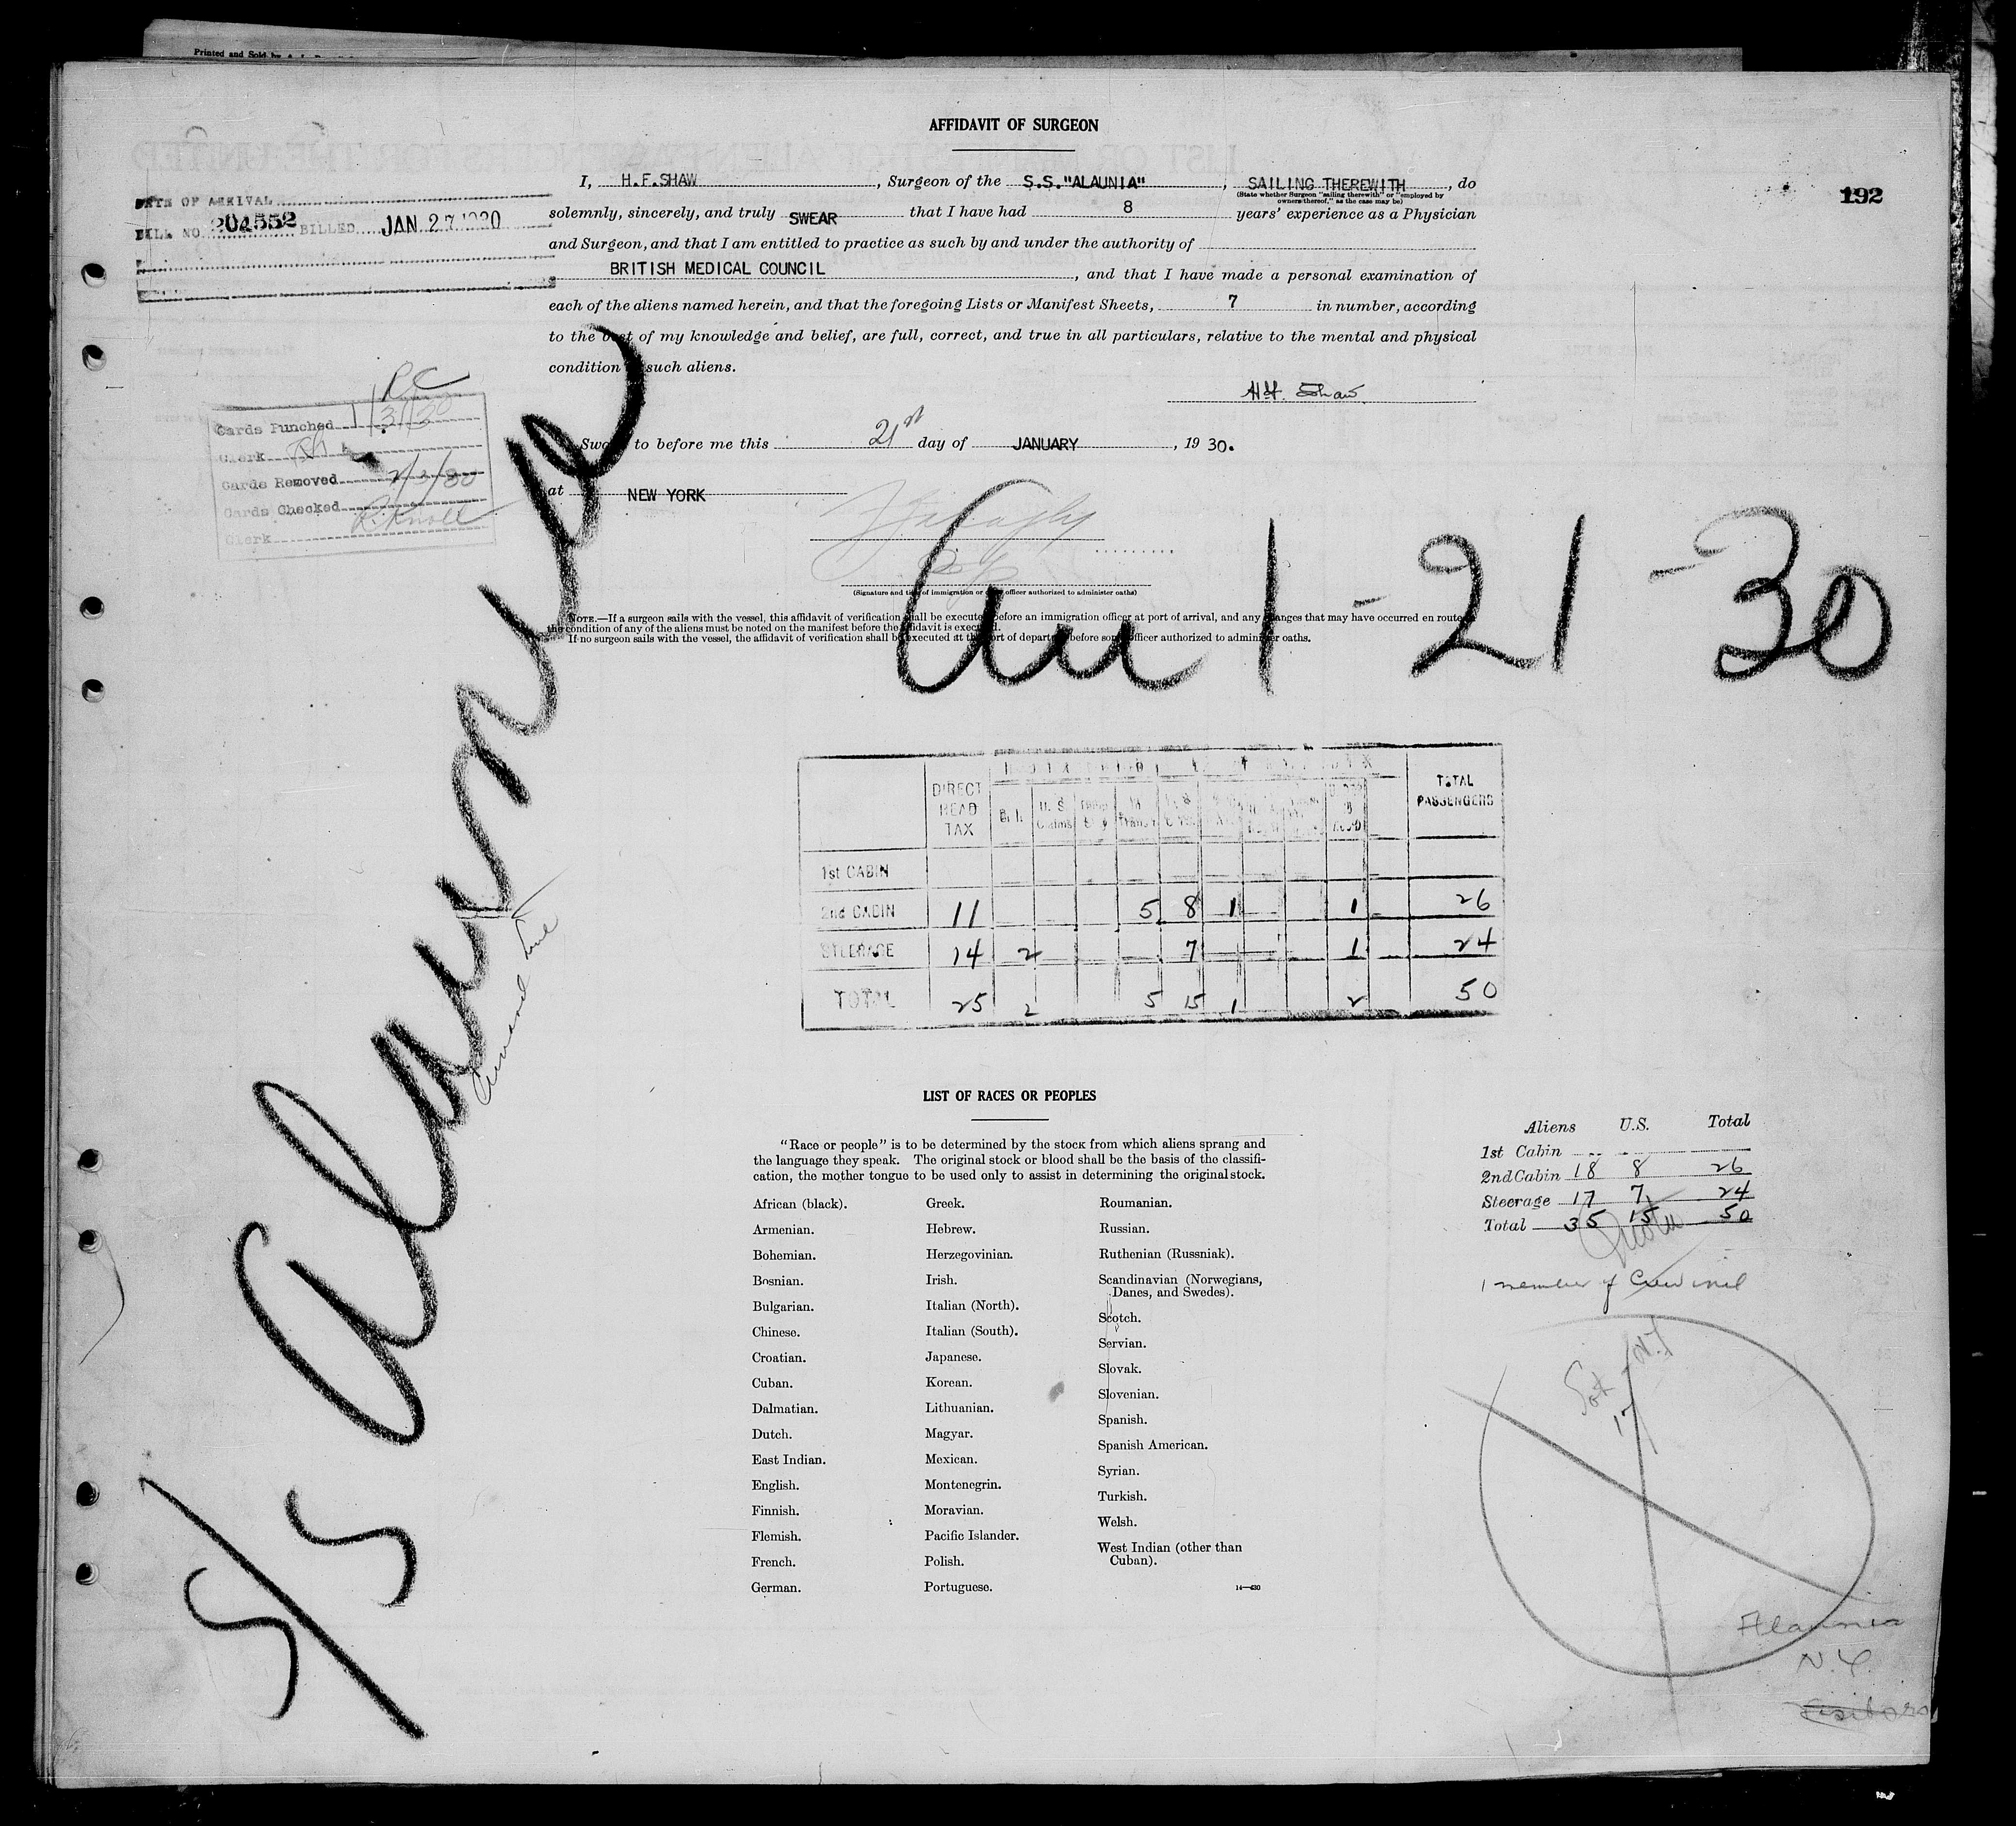 Printed and Sold by
AFFIDAVIT OF SURGEON
192
DATE OF ARRIVAL
BILL NO. 204552 BILLED JAN 27 1930
I, H.F.SHAW, Surgeon of the S.S."ALAUNIA", SAILING THEREWITH, do
(State whether Surgeon "sailing therewith" or "employed by
owners thereof," as the case may be)
solemnly, sincerely, and truly SWEAR that I have had 8 years' experience as a Physician
and Surgeon, and that I am entitled to practice as such by and under the authority of
BRITISH MEDICAL COUNCIL, and that I have made a personal examination of
each of the aliens named herein, and that the foregoing Lists or Manifest Sheets, 7 in number, according
to the best of my knowledge and belief, are full, correct, and true in all particulars, relative to the mental and physical
condition of such aliens.
H.F. Shaw
Sworn to before me this 21st day of JANUARY, 1930.
at NEW YORK
(Signature and title of immigration or other officer authorized to administer oaths)
NOTE.—If a surgeon sails with the vessel, this affidavit of verification shall be executed before an immigration officer at port of arrival, and any changes that may have occurred en route in
the condition of any of the aliens must be noted on the manifest before the affidavit is executed.
If no surgeon sails with the vessel, the affidavit of verification shall be executed at the port of departure before some officer authorized to administer oaths.
RC
Cards Punched 1/31/30
Clerk
Cards Removed 2/3/30
Cards Checked
Clerk R. Knoll
Arr 1-21-30
S/S Alaunia
Cunard Line
DIRECT HEAD TAX
TOTAL PASSENGERS
B.I. U.S. Transit
1st CABIN
2nd CABIN 11 5 8 1 1 26
STEERAGE 14 2 7 1 24
TOTAL 25 2 5 15 1 2 50
LIST OF RACES OR PEOPLES
"Race or people" is to be determined by the stock from which aliens sprang and
the language they speak. The original stock or blood shall be the basis of the classifi-
cation, the mother tongue to be used only to assist in determining the original stock.
African (black).
Armenian.
Bohemian.
Bosnian.
Bulgarian.
Chinese.
Croatian.
Cuban.
Dalmatian.
Dutch.
East Indian.
English.
Finnish.
Flemish.
French.
German.
Greek.
Hebrew.
Herzegovinian.
Irish.
Italian (North).
Italian (South).
Japanese.
Korean.
Lithuanian.
Magyar.
Mexican.
Montenegrin.
Moravian.
Pacific Islander.
Polish.
Portuguese.
Roumanian.
Russian.
Ruthenian (Russniak).
Scandinavian (Norwegians,
Danes, and Swedes).
Scotch.
Servian.
Slovak.
Slovenian.
Spanish.
Spanish American.
Syrian.
Turkish.
Welsh.
West Indian (other than
Cuban).
14—430
Aliens U.S. Total
1st Cabin
2nd Cabin 18 8 26
Steerage 17 7 24
Total 35 15 50
1 member of Crew incl
N.Y.
17
Alaunia
N.Y.